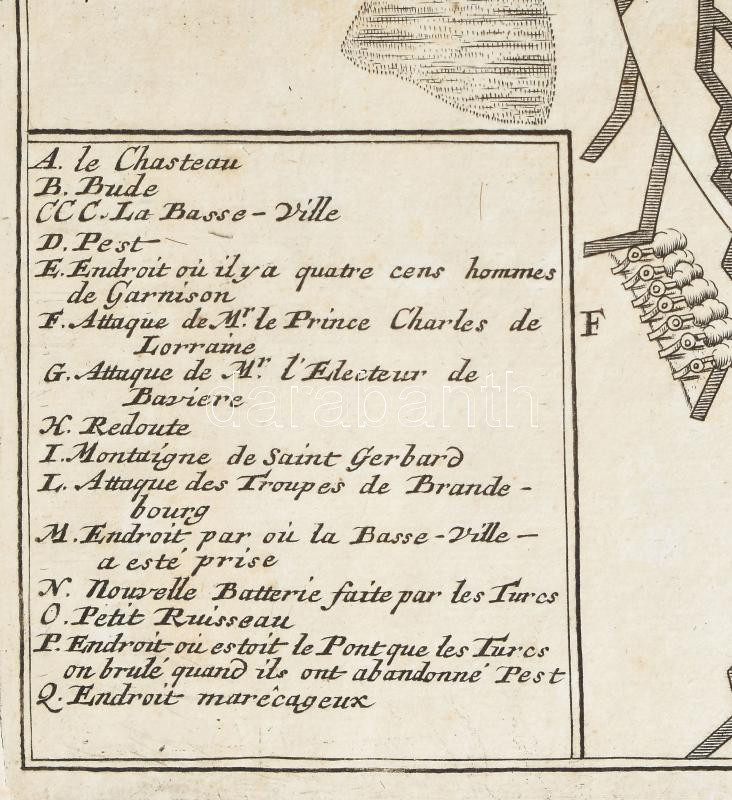 A. le Chasteau
B. Bude
CCC. La Basse-Ville
D. Pest
E. Endroit où il y a quatre cens hommes
de Garnison
F. Attaque de Mr. le Prince Charles de
Lorraine
F
G. Attaque de Mr. l'Electeur de
Baviere
darabanth
H. Redoute
I. Montaigne de Saint Gerbard
L. Attaque des Troupes de Brande-
bourg
M. Endroit par où la Basse-Ville-
a esté prise
N. Nouvelle Batterie faite par les Turcs
O. Petit Ruisseau
P. Endroit où estoit le Pont que les Turcs
on brulé quand ils ont abandonné Pest
Q. Endroit marêcageux